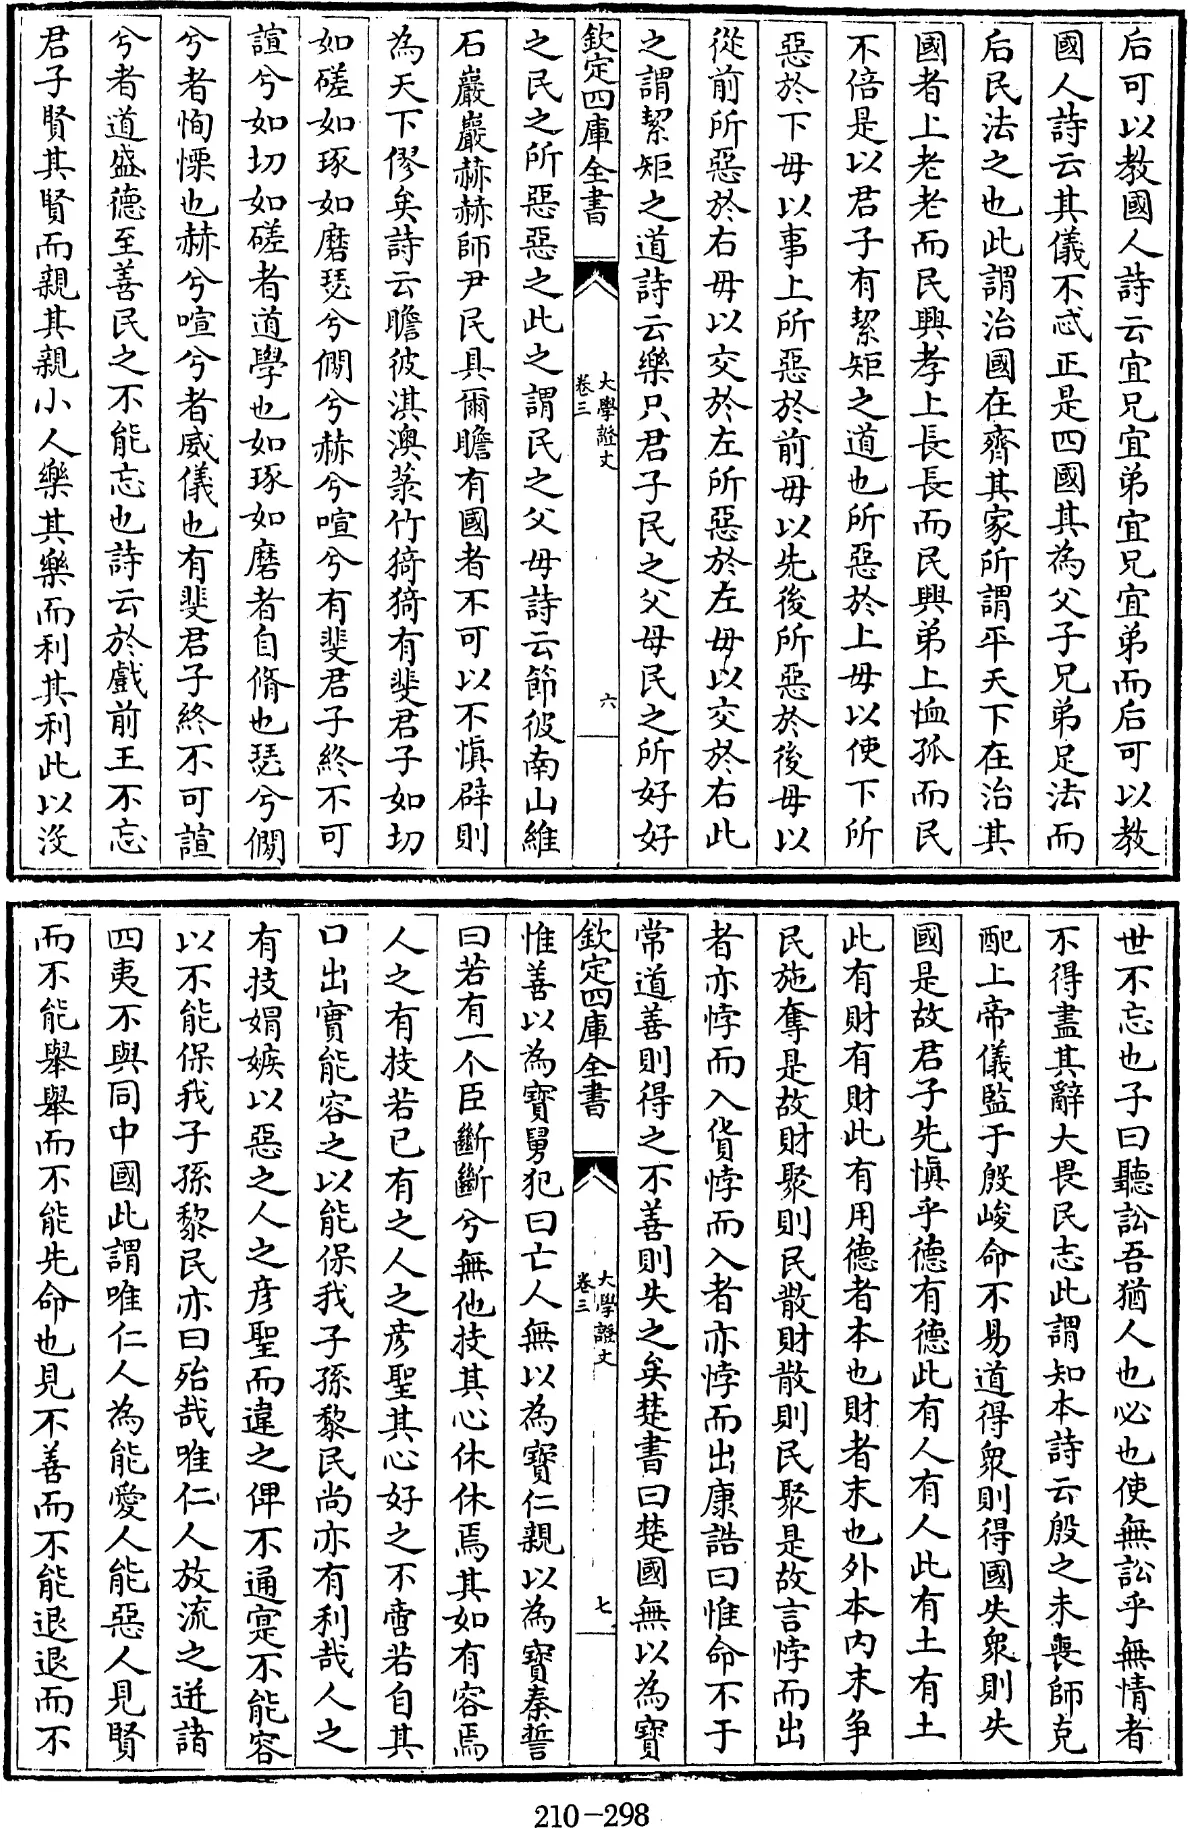 后可以教國人詩云宜兄宜弟宜兄宜弟而后可以教
國人詩云其儀不忒正是四國其為父子兄弟足法而
后民法之也此謂治國在齊其家所謂平天下在治其
國者上老老而民興孝上長長而民興弟上恤孤而民
不倍是以君子有絜矩之道也所惡於上毋以使下所
惡於下毋以事上所惡於前毋以先後所惡於後毋以
從前所惡於右毋以交於左所惡於左毋以交於右此
之謂絜矩之道詩云樂只君子民之父母民之所好好
欽定四庫全書
大學證文
卷三
六
之民之所惡惡之此之謂民之父母詩云節彼南山維
石巖巖赫赫師尹民具爾瞻有國者不可以不慎辟則
為天下僇矣詩云瞻彼淇澳菉竹猗猗有斐君子如切
如磋如琢如磨瑟兮僩兮赫兮喧兮有斐君子終不可
諠兮如切如磋者道學也如琢如磨者自脩也瑟兮僩
兮者恂慄也赫兮喧兮者威儀也有斐君子終不可諠
兮者道盛德至善民之不能忘也詩云於戲前王不忘
君子賢其賢而親其親小人樂其樂而利其利此以沒
世不忘也子曰聽訟吾猶人也必也使無訟乎無情者
不得盡其辭大畏民志此謂知本詩云殷之未喪師克
配上帝儀監于殷峻命不易道得衆則得國失衆則失
國是故君子先慎乎德有德此有人有人此有土有土
此有財有財此有用德者本也財者末也外本內末争
民施奪是故財聚則民散財散則民聚是故言悖而出
者亦悖而入貨悖而入者亦悖而出康誥曰惟命不于
常道善則得之不善則失之矣楚書曰楚國無以為寶
欽定四庫全書
大學證文
卷三
七
惟善以為寶舅犯曰亡人無以為寶仁親以為寶秦誓
曰若有一个臣斷斷兮無他技其心休休焉其如有容焉
人之有技若已有之人之彦聖其心好之不啻若自其
口出實能容之以能保我子孫黎民尚亦有利哉人之
有技媢嫉以惡之人之彦聖而違之俾不通寔不能容
以不能保我子孫黎民亦曰殆哉唯仁人放流之迸諸
四夷不與同中國此謂唯仁人為能愛人能惡人見賢
而不能舉舉而不能先命也見不善而不能退退而不
210-298